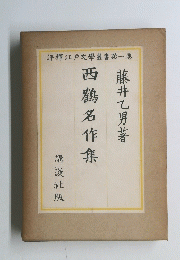 評釋江戸文學叢書第一集
藤井乙男著
西鶴名作集
講談社版